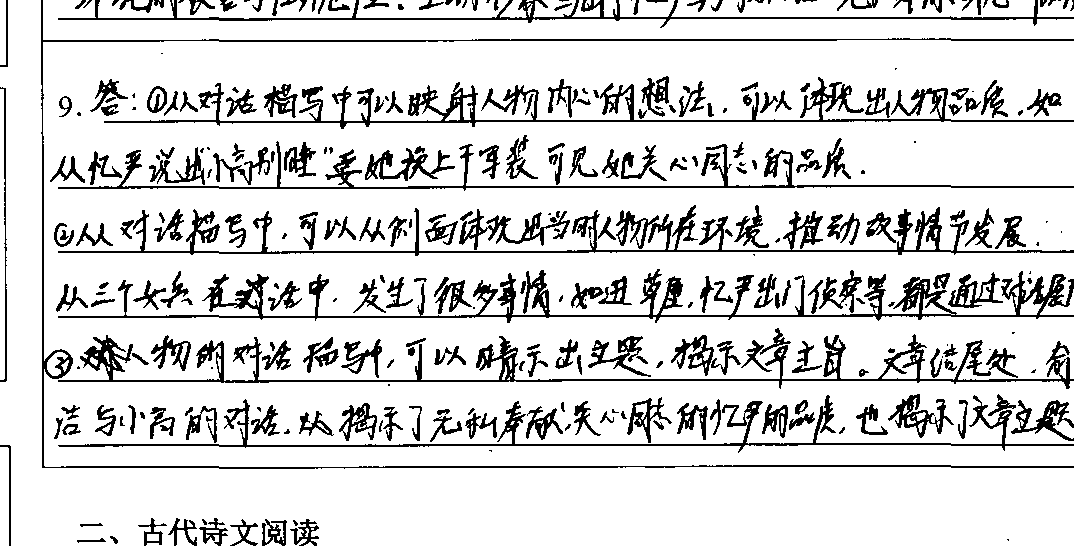 9. 答：①从对话描写中可以映射人物内心的想法，可以体现出人物品质，如
从忆严说出"小高别睡"要她换上干军装可见她关心同志的品质．
②从对话描写中，可以从侧面体现出当时人物所在环境，推动故事情节发展．
从三个女兵在对话中，发生了很多事情，如进草屋，忆严出门侦察等，都是通过对话展
③人物的对话描写中，可以暗示出主题，揭示文章主旨。文章结尾处，俞
洁与小高的对话，从揭示了无私奉献，关心同志的忆严的品质，也揭示了文章主题
二、古代诗文阅读